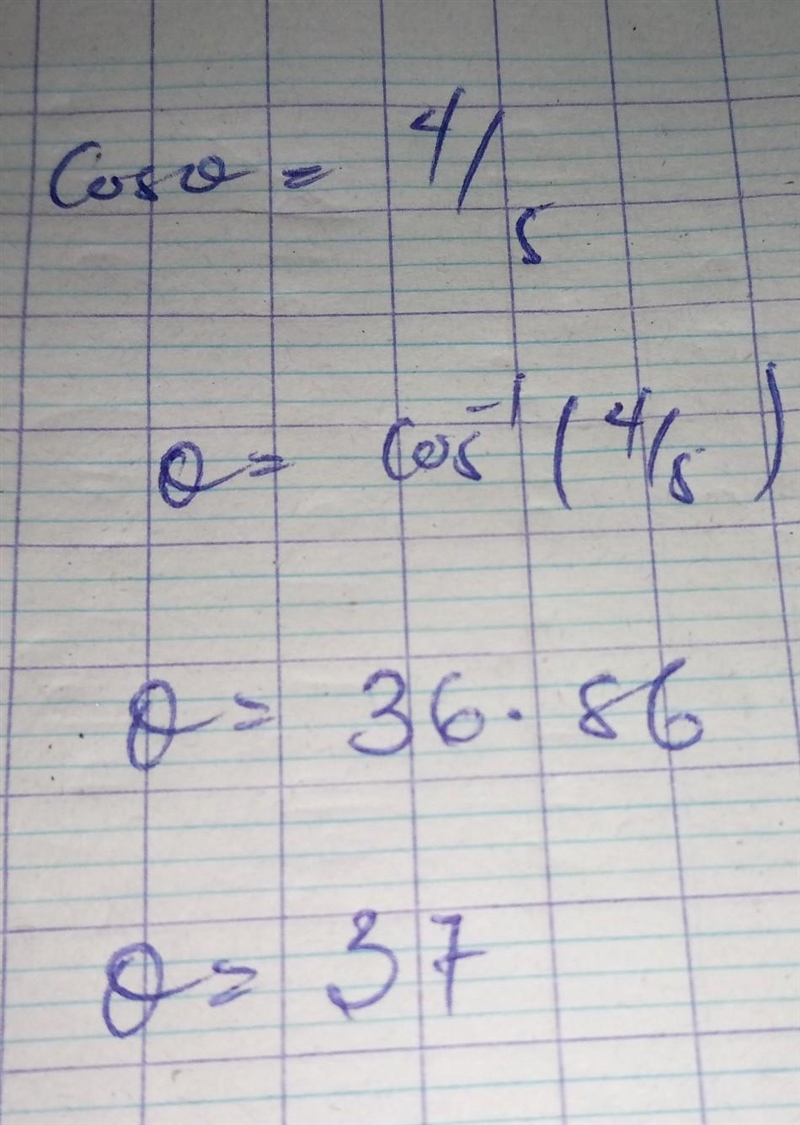 Cos θ = 4/5
θ = Cos⁻¹ (4/5)
θ = 36.86
θ = 37